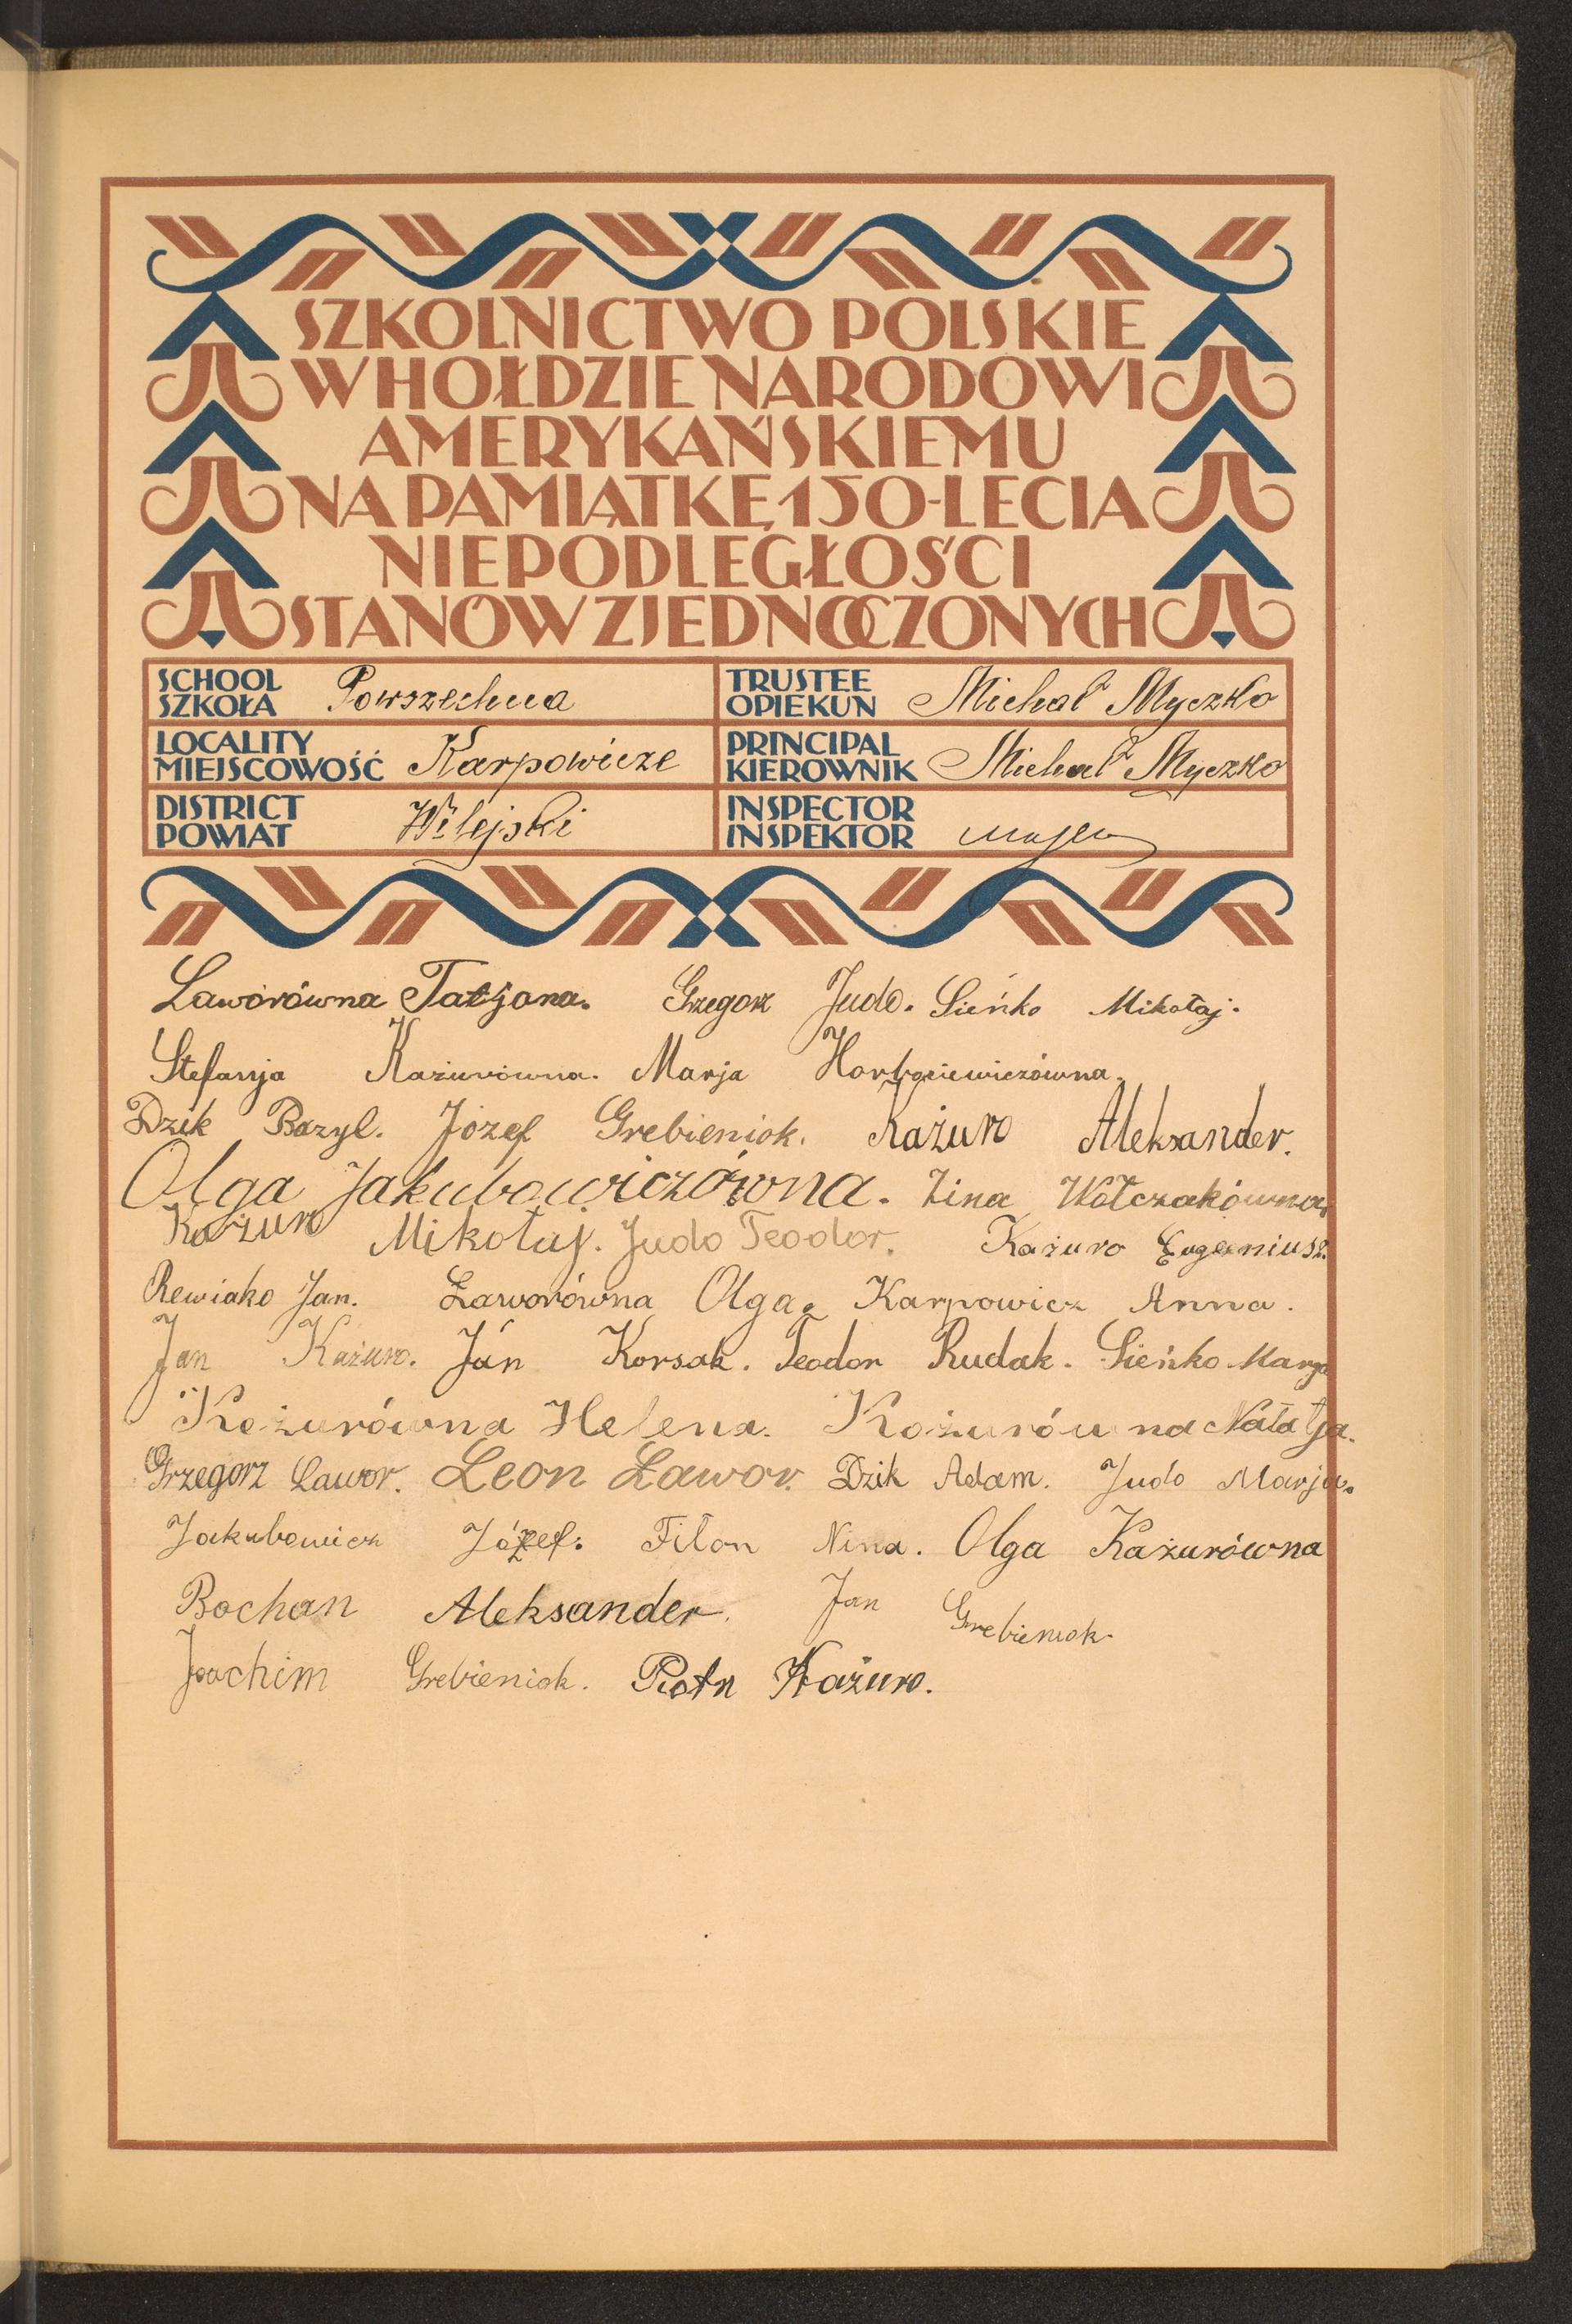 SZKOLNICTWO POLSKIE
W HOŁDZIE NARODOWI
AMERYKAŃSKIEMU
NA PAMIĄTKĘ 150-LECIA
NIEPODLEGŁOŚCI
STANÓW ZJEDNOCZONYCH
SCHOOL SZKOŁA Powszechna TRUSTEE OPIEKUN Michał Myczko
LOCALITY MIEJSCOWOŚĆ Karpowicze PRINCIPAL KIEROWNIK Michał Myczko
DISTRICT POWIAT Wilejski INSPECTOR INSPEKTOR
Ławorówna Tatjana. Grzegorz Judo. Sieńko Mikołaj.
Stefanja Każurówna. Marja Horbaciewiczówna.
Dzik Bazyl. Józef Grebieniok. Każuro Aleksander.
Olga Jakubowiczówna. Zina Wołczakówna.
Każuro Mikołaj. Judo Teodor. Każuro Eugeniusz.
Rewiako Jan. Ławorówna Olga. Karpowicz Anna.
Jan Każuro. Ján Korsak. Teodor Rudak. Sieńko Marja
Kożurówna Helena. Kożurówna Natalja.
Grzegorz Ławor. Leon Ławor. Dzik Adam. Judo Marja.
Jakubowicz Józef. Filon Nina. Olga Każurówna
Bochan Aleksander. Jan Grebieniok.
Joachim Grebieniok. Piotr Każuro.